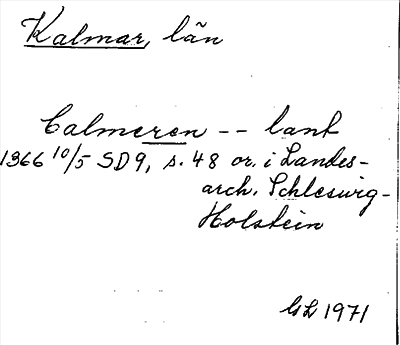 Kalmar, län
Calmeren -- lant
1366 10/5 SD9, s. 48 or. i Landes-
arch. Schleswig-
Holstein
GL 1971